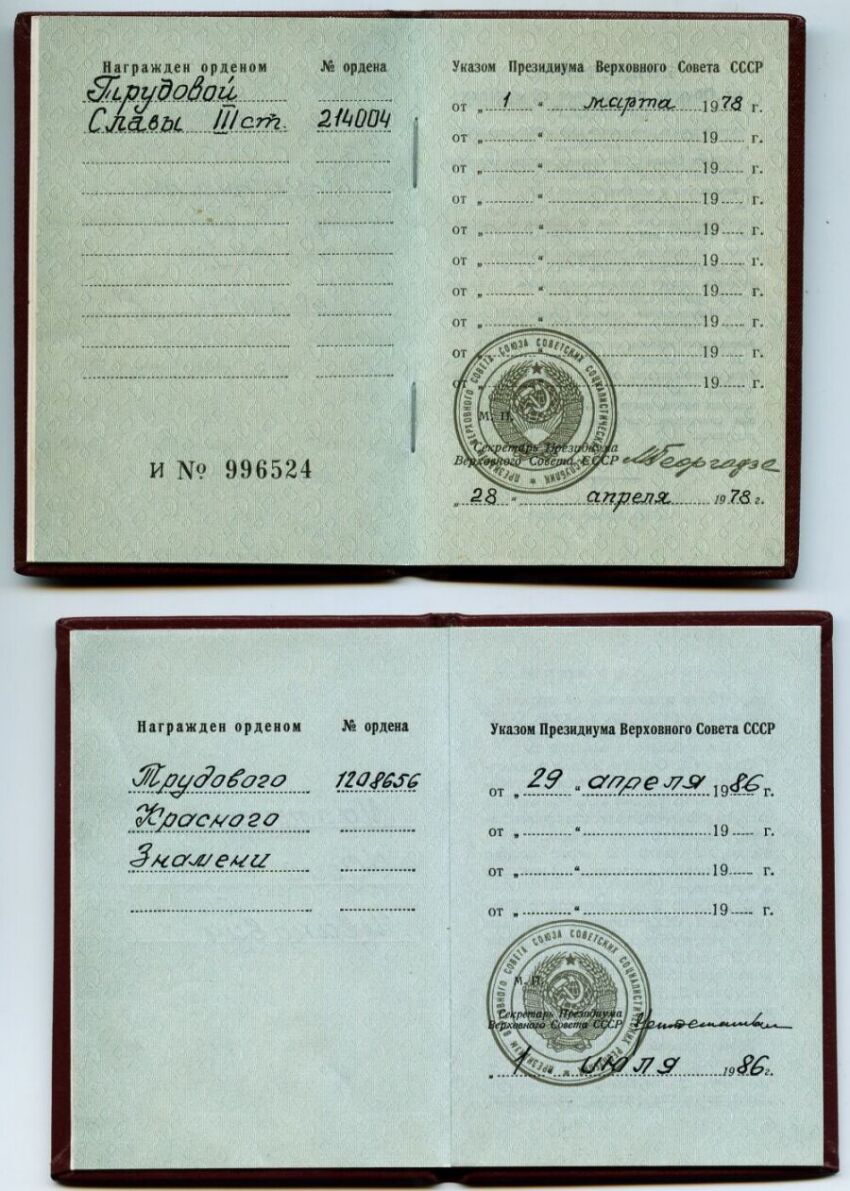 Награжден орденом № ордена
Трудовой
Славы III ст. 214004
И № 996524
Указом Президиума Верховного Совета СССР
от „ 1 “ марта 1978 г.
от „ “ 19 г.
от „ “ 19 г.
от „ “ 19 г.
от „ “ 19 г.
от „ “ 19 г.
от „ “ 19 г.
от „ “ 19 г.
от „ “ 19 г.
от „ “ 19 г.
ПРЕЗИДИУМ ВЕРХОВНОГО СОВЕТА СОЮЗА СОВЕТСКИХ СОЦИАЛИСТИЧЕСКИХ РЕСПУБЛИК
М. П.
Секретарь Президиума
Верховного Совета СССР МГеоргадзе
„ 28 “ апреля 1978 г.
Награжден орденом № ордена
Трудового 1208656
Красного
Знамени
Указом Президиума Верховного Совета СССР
от „ 29 “ апреля 1986 г.
от „ “ 19 г.
от „ “ 19 г.
от „ “ 19 г.
ПРЕЗИДИУМ ВЕРХОВНОГО СОВЕТА СОЮЗА СОВЕТСКИХ СОЦИАЛИСТИЧЕСКИХ РЕСПУБЛИК
М. П.
Секретарь Президиума
Верховного Совета СССР
„ 1 “ июля 1986 г.